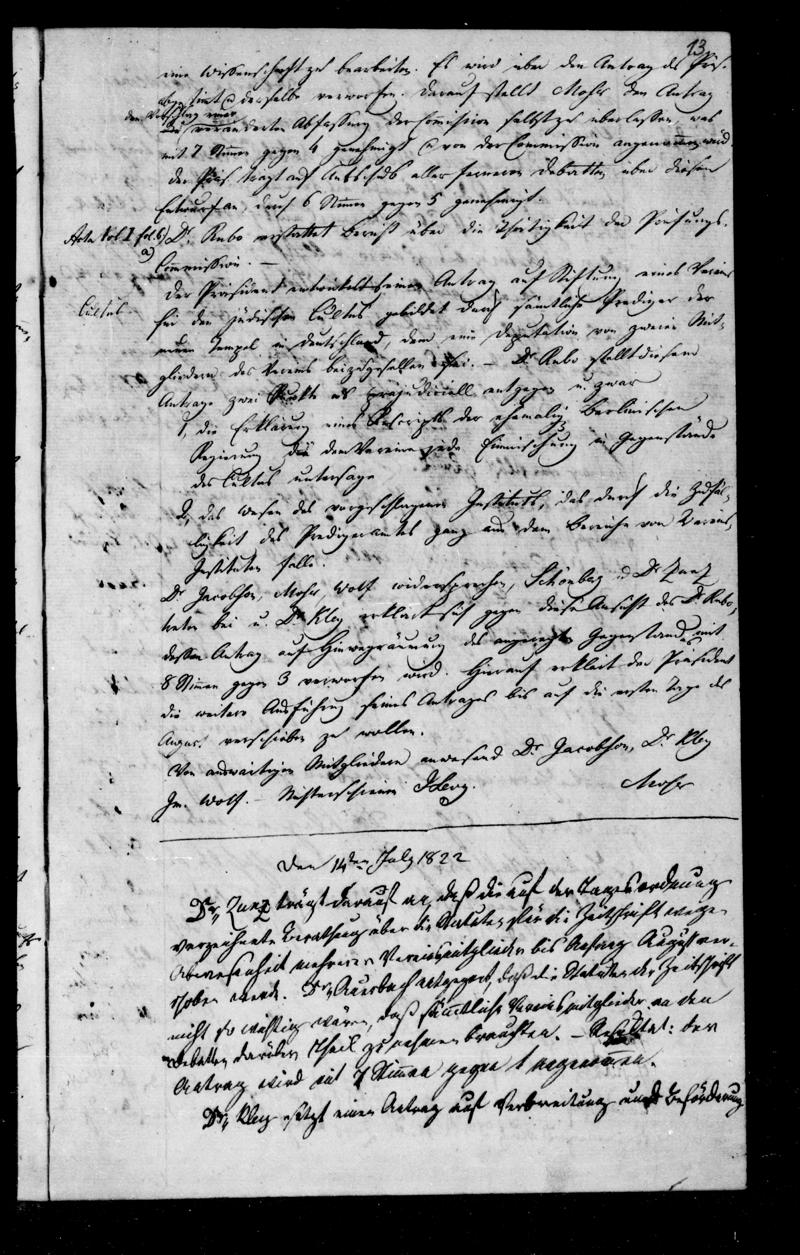 13.
eine Wissenschaft zu bearbeiten. Es wird über den Antrag des Präs.
abgestimmt u derselbe verworfen. Darauf stellt Moser den Antrag
den Vorschlag einer
veränderten Abfassung der Comission selbst zu überlassen, was
mit 7 Stimmen gegen 4 genehmigt u von der Commission angenommen wird.
Der Präs. trägt auf Aufschub aller ferneren Debatten über diesen
Entwurf an, durch 6 Stimmen gegen 5 genehmigt.
Acta Vol I fol. 6) Dr. Rubo erstattet Bericht über die Thätigkeit der Prüfungs-
a) Commission. —
Cultus
Der Präsident entwickelt seinen Antrag auf Stiftung eines Vereins
für den jüdischen Cultus gebildet durch sämtliche Prediger der
neuen Tempel in Deutschland, dem eine Deputation von zweien Mit-
gliedern des Vereins beizugesellen sei. — Dr. Rubo stellt diesem
Antrage zwei Punkte als präjudiciell entgegen u. zwar
1, die Erklärung eines Rescripts der ehemalig. Berlinischen
Regierung die dem Vereine jede Einmischung in Gegenstände
des Cultus untersage
2, das Wesen des vorgeschlagenen Instituts, das durch die Zufäl-
ligkeit des Predigeramtes ganz aus dem Bereiche von Vereins
Instituten falle.
Dr. Jacobson, Moser, Wolf widersprechen, Schönberg u Dr. Zunz
treten bei u. Dr. Kley erklärt sich gegen diese Ansicht des Dr. Rubo,
dessen Antrag auf Hinwegräumung des angeregten Gegenstandes mit
8 Stimmen gegen 3 verworfen wird. Hierauf erklärt der Präsident
die weitere Ausführung seines Antrages bis auf die ersten Tage des
August verschieben zu wollen.
Von auswärtigen Mitgliedern anwesend Dr. Jacobson, Dr. Kley
Im. Wolf. — Moser
Den 14ten July 1822
Dr. Zunz trägt darauf an, daß die auf der Tagesordnung
verzeichnete Berathung über die Statuten für die Zeitschrift wegen
Abwesenheit mehrerer Vereinsmitglieder bis Anfang August ver-
schoben werde. Dr. Auerbach entgegnet, daß die Statuten der Zeitschrift
nicht so wichtig wären, daß sämtliche Vereinsmitglieder an den
Debatten darüber Theil zu nehmen brauchten. — Resultat: der
Antrag wird mit 7 Stimmen gegen 1 angenommen.
Dr. Kley setzt einen Antrag auf Verbreitung und Beförderung